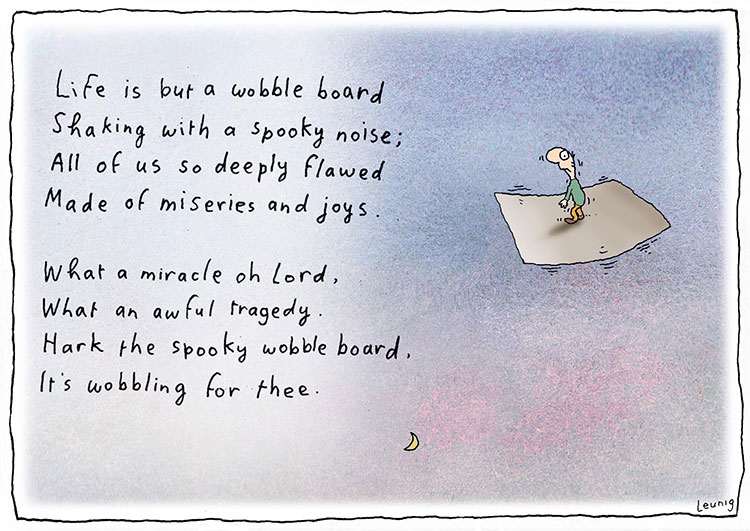 Life is but a wobble board
Shaking with a spooky noise;
All of us so deeply flawed
Made of miseries and joys.
What a miracle oh Lord,
What an awful tragedy.
Hark the spooky wobble board,
It's wobbling for thee.
Leunig